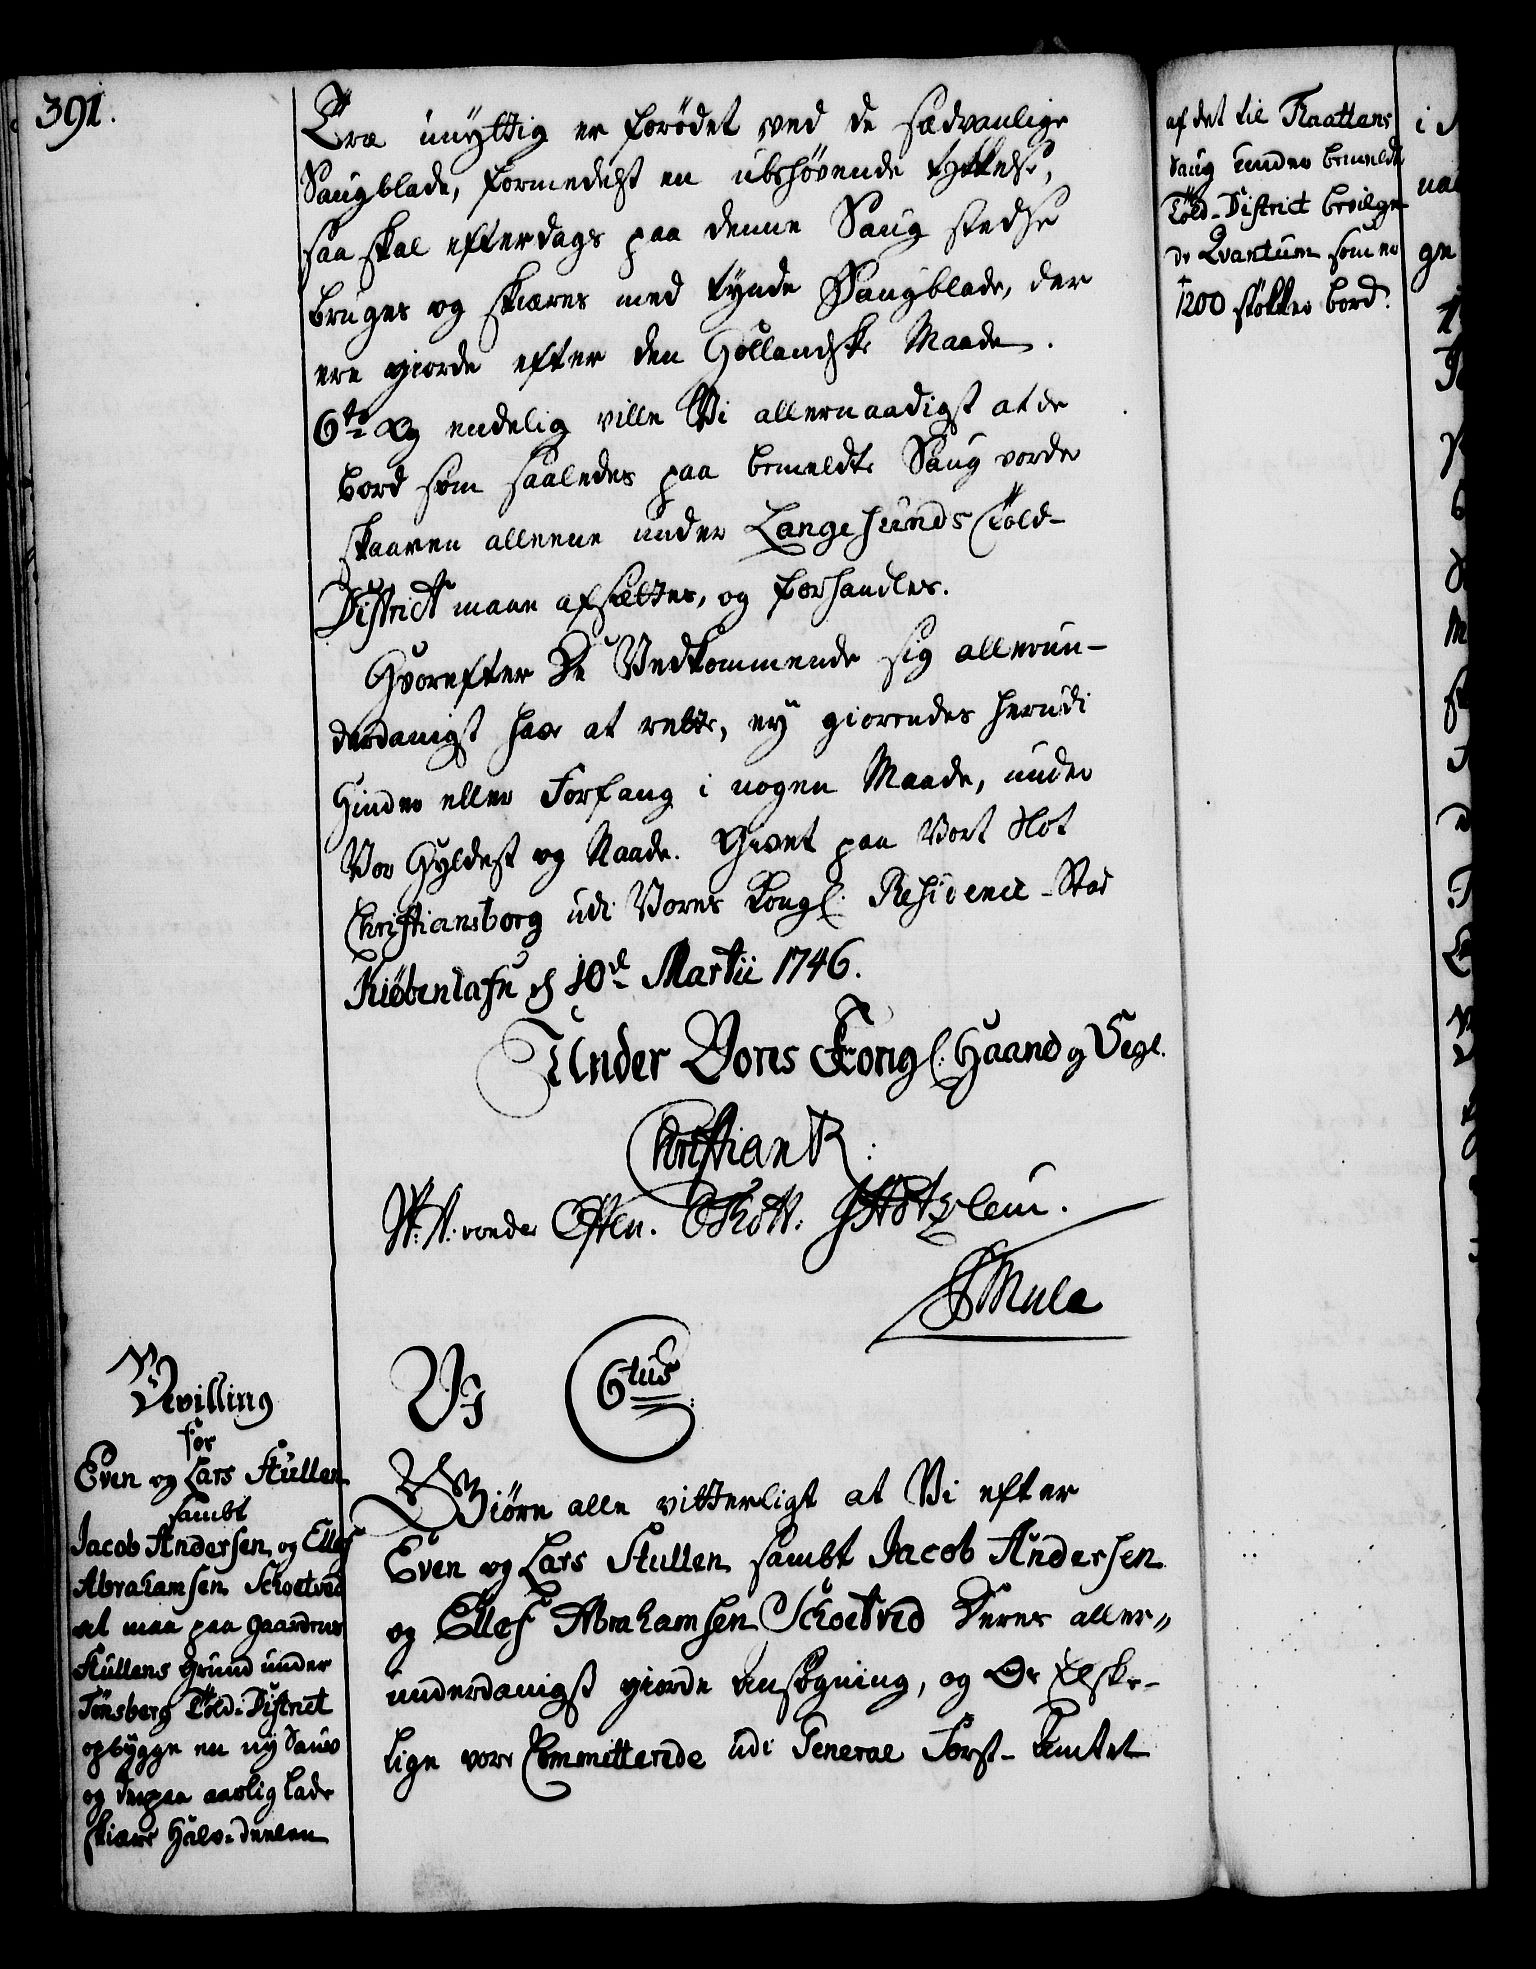 391.
Træ unyttig er forödet ved de sædvanlige
Saugblade, formedelst en ubehövende tykkelse,
saa skal efterdags paa denne Saug stedse
bruges og skiæres med tynde Saugblade, der
ere giorde efter den Hollandske Maade.
6te Og endelig ville Vi allernaadigst at de
bord som saaledes paa bemeldte Saug vorde
skaaren alleene under Langesunds Told-
District maae afsættes, og forhandles.
Hvorefter De Vedkommende sig allerun-
derdanigst haer at rette, ey giörendes herudi
Hinder eller Forfang i nogen Maade, under
Vor Hyldest og Naade. Givet paa Vort Slot
Christiansborg udi Vores Kongl. Residence-Stad
Kiöbenhafn d 10de Martii 1746.
Under Vores Kongl: Haand og Segl.
Christian R:
W. A. von der Osten. OThott. JHötzlein.
Mule
Bevilling
for
Even og Lars Stullen
sambt
Jacob Andersen og Ellef
Abrahamsen Schoetved
at maa paa gaardens
Stullens grund under
Tönsberg Told-District
opbygge en ny Saug
og derpaa aarlig lade
skiære Halv-deelen
Vj 6tus
Giöre alle vitterligt at Vi efter
Even og Lars Stullen sambt Jacob Andersen
og Ellef Abrahamsen Schoetved Deres aller-
underdanigst giorde ansögning, og De Elske-
lige vore Committerede udi General Forst-Amtet
af det til Kaattans
Saug under bemeldte
Told-District bevilge-
de Qvantum som er
1200 stökker bord.